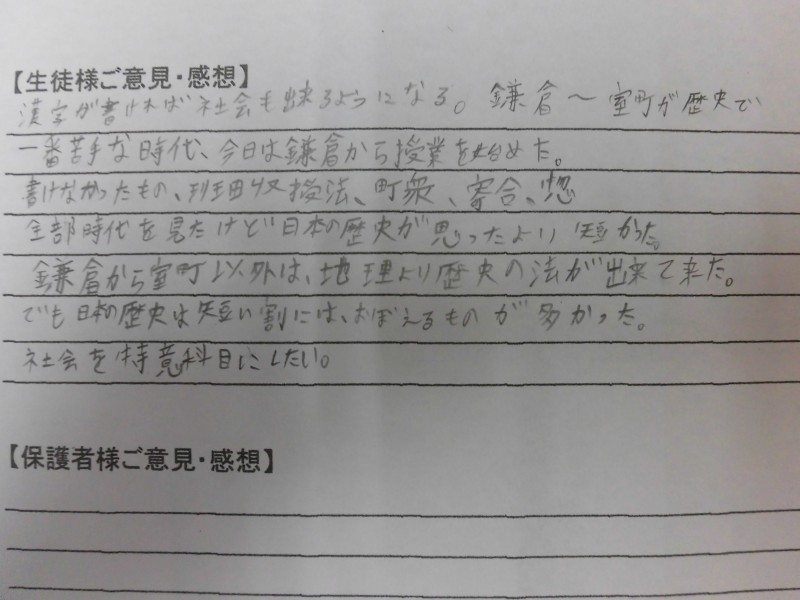 【生徒様ご意見・感想】
漢字が書ければ社会も出来るようになる。鎌倉〜室町が歴史で
一番苦手な時代、今日は鎌倉から授業を始めた。
書けなかったもの、班田収授法、町衆、寄合、惣
全部時代を見たけど日本の歴史が思ったより短かった。
鎌倉から室町以外は、地理より歴史の法が出来て来た。
でも日本の歴史は短い割には、おぼえるものが多かった。
社会を特意科目にしたい。
【保護者様ご意見・感想】